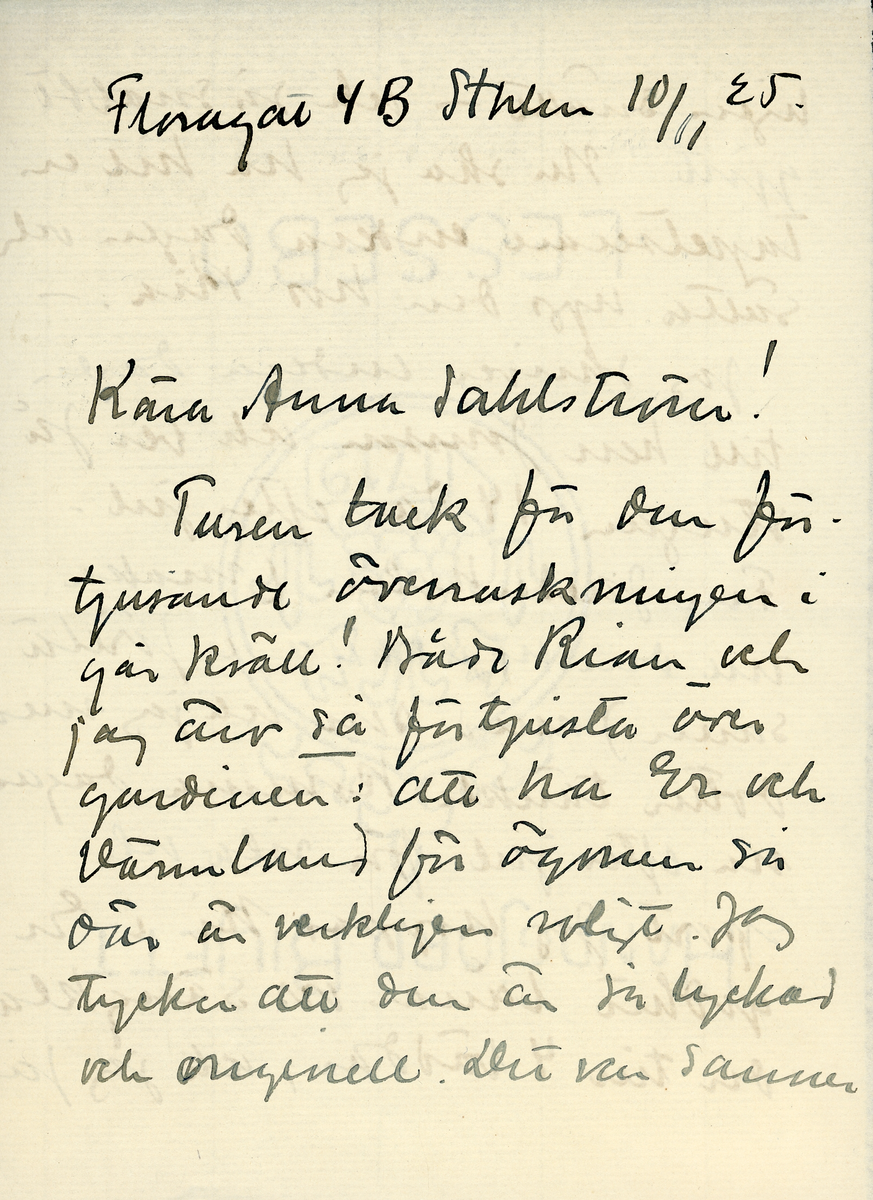 Floragat 4 B Sthlm 10/11 25.
Kära Anna Sahlström!
Tusen tack för den för-
tjusande överraskningen i
går kväll! Både Rian och
jag äro så förtjusta över
gardinen: att ha Er och
Värmland för ögonen så
där är verkligen roligt. Jag
tycker att den är så lyckad
och originell. Det var sanner